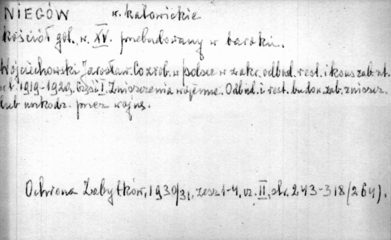 NIEGÓW w. katowickie
Kościół got. w. XV. przebudowany w baroku.
Wojciechowski Jarosław. Co zrob. w polsce w zakr. odbud. rest. i kons. zab. szt.
w l. 1919-1929. Część I. Zniszczenia wojenne. Odbud. i rest. budow. zab. zniszcz.
lub uszkodz. przez wojnę.
Ochrona Zabytków, 1930/31, zesz 1-4, cz. II, str. 243-318 (264).